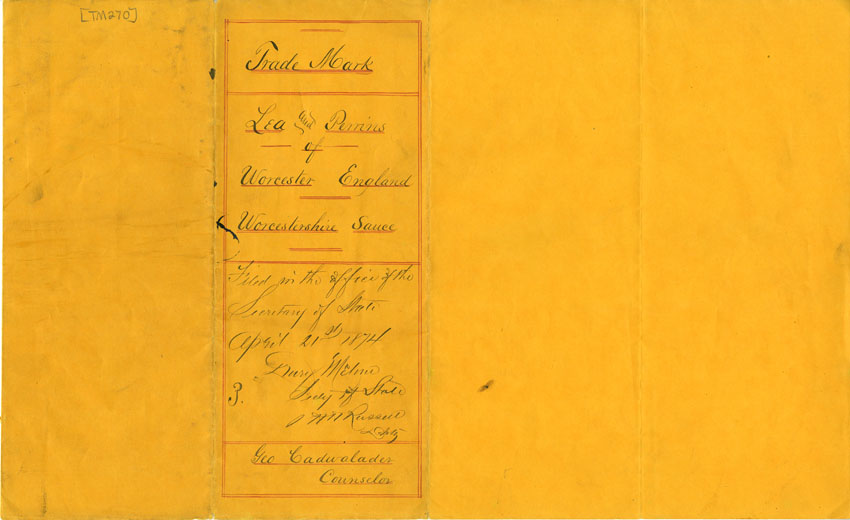 [TM270]
Trade Mark
Lea and Perrins
of
Worcester England
Worcestershire Sauce
Filed in the office of the
Secretary of State
April 21st 1874
Drury Melone
3. Secy of State
Russell
Depty
Geo Cadwalader
Counselor